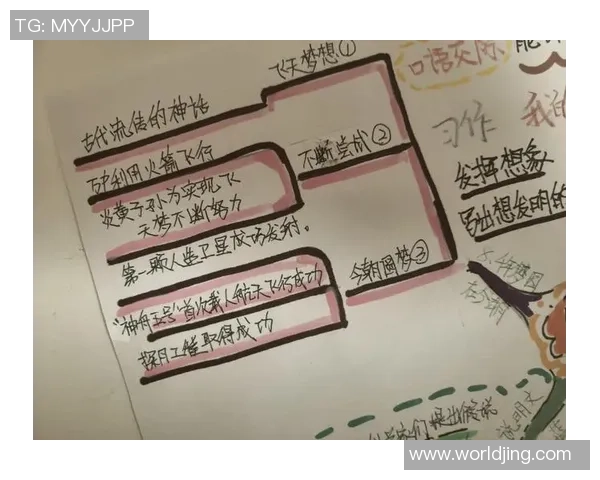 TG: MYYJJPP
飞天梦想①
古代流传的神话
不断尝试②
万户利用火箭飞行
炎黄子孙为实现飞
天梦不断努力
第一颗人造卫星成功发射。
今朝圆梦③
"神舟五号"首次载人航天飞行成功
探月工程取得成功
口语交际
习作
我的
发挥想象
写出想发明的
千年梦圆
在今朝
提出假说
说明文
www.worldjing.com